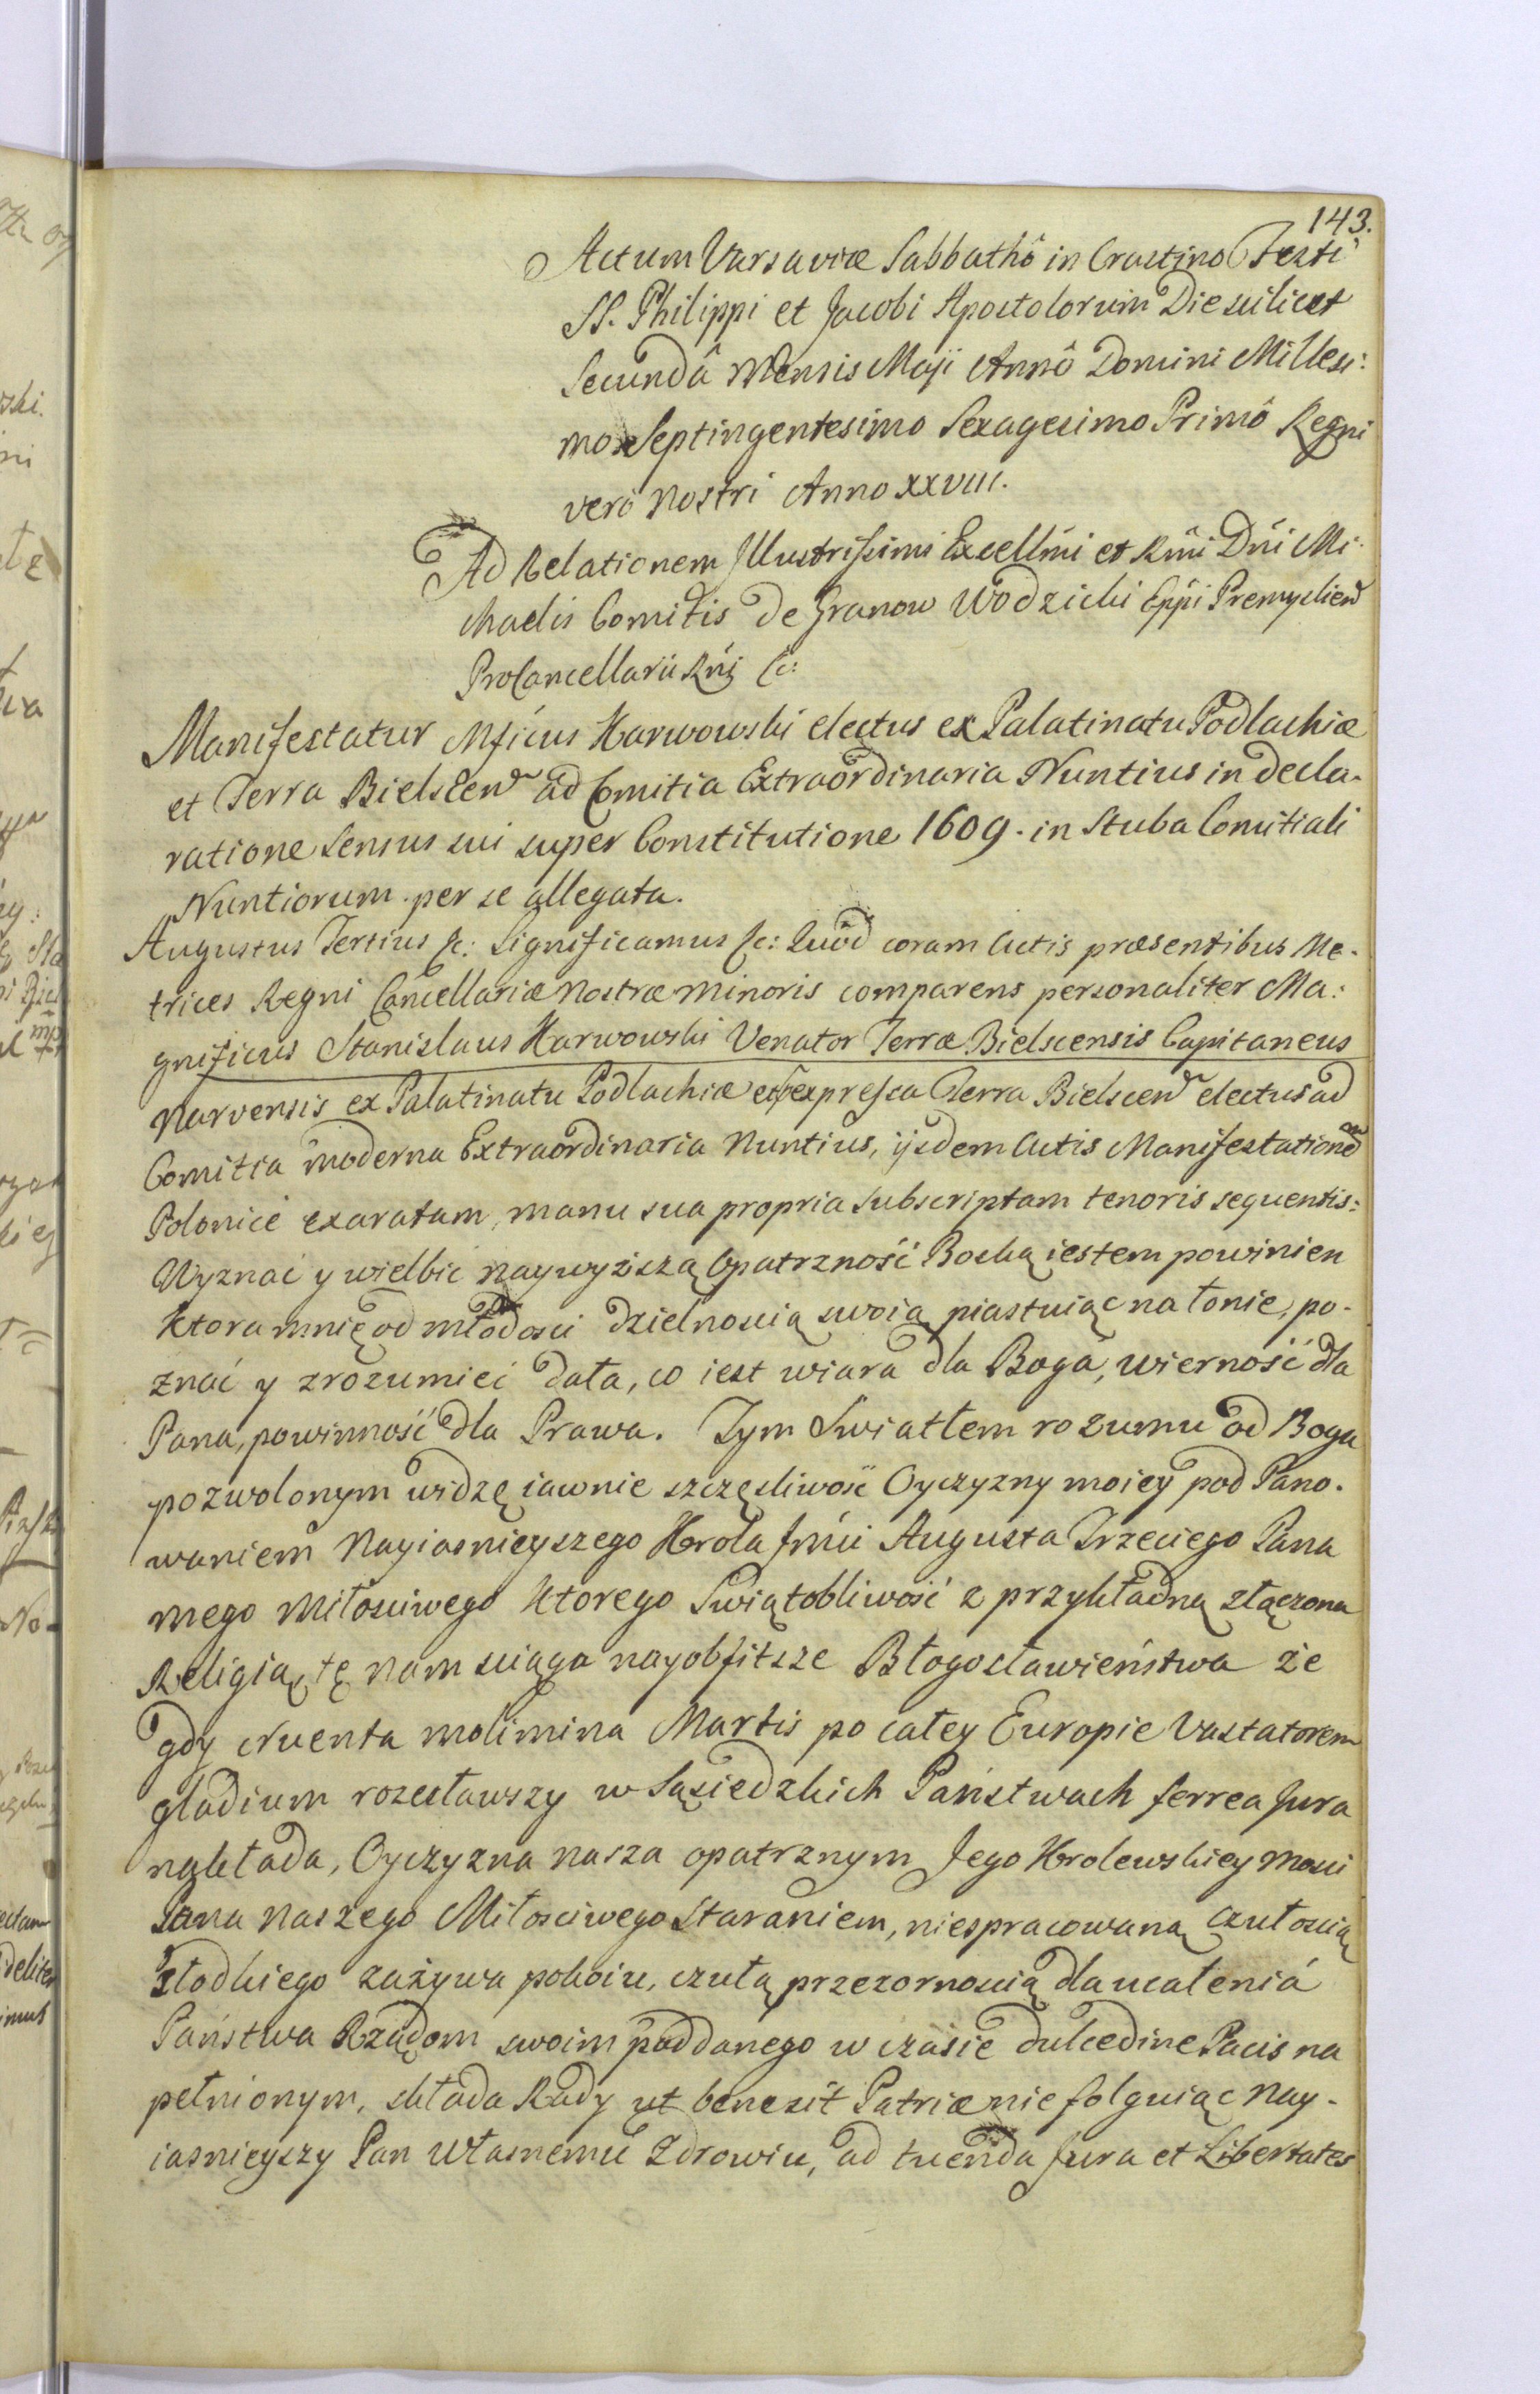 143.
Actum Varsaviæ Sabbathô in Crastino Festi
SS. Philippi et Jacobi Apostolorum Die scilicet
Secundâ Mensis Maji Annô Domini Millesi:
mo Septingentesimo Sexagesimo Primô Regni
vero Nostri Anno XXVIII.
Ad Relationem Illustrissimi Excellmi et Rmi Dni Mi-
chaelis Comitis de Granow Wodzicki Eppi Premyslien
ProCancellarii Rni &c:
Manifestatur Mficus Karwowski electus ex Palatinatu Podlachiæ
et Terra Bielscen ad Comitia Extraordinaria Nuntius in decla-
ratione Sensus sui super Constitutione 1609. in Stuba Comitiali
Nuntiorum per se allegata.
Augustus Tertius &c: Significamus &c: Quod coram Actis præsentibus Me-
trices Regni Cancellariæ Nostræ Minoris comparens personaliter Ma:
gnificus Stanislaus Karwowski Venator Terræ Bielscensis Capitaneus
Narvensis ex Palatinatu Podlachiæ et expressa Terra Bielscen electus ad
Comitia moderna Extraordinaria Nuntius, ijsdem Actis Manifestationem
Polonicè exaratam, manu sua propria subscriptam tenoris sequentis:
Wyznać y wielbić Naywyższą Opatrzność Boską iestem powinien
Ktora mnię od młodosci dzielnoscią swoią piastuiąc na łonie, po-
znać y zrozumieć dała, co iest wiara dla Boga, wierność dla
Pana, powinność dla Prawa. Tym Swiatłem rozumu od Boga
pozwolonym widzę iawnie szczęsliwość Oyczyzny moiey pod Pano-
waniem Nayiasnieyszego Krola Jmci Augusta Trzeciego Pana
mego Miłosciwego Ktorego Swiątobliwość z przykładną złączona
Religią, tę nam sciąga nayobfitsze Błogosławieństwa że
gdy cruenta molimina Martis po całey Europie Vastatorem
gladium rozesławszy w Sąsiedzkich Państwach ferrea Jura
nakłada, Oyczyzna nasza opatrznym Jego Krolewskiey Mosci
Pana Naszego Miłosciwego Staraniem, niespracowaną czułoscią
słodkiego zażywa pokoiu, czułą przezornoscią dla ucalenia
Państwa Rządom swoim poddanego w czasie dulcedine Pacis na
pełnionym, składa Rady ut benesit Patriæ nie folguiąc Nay-
iasnieyszy Pan własnemu Zdrowiu, ad tuenda Jura et Libertates